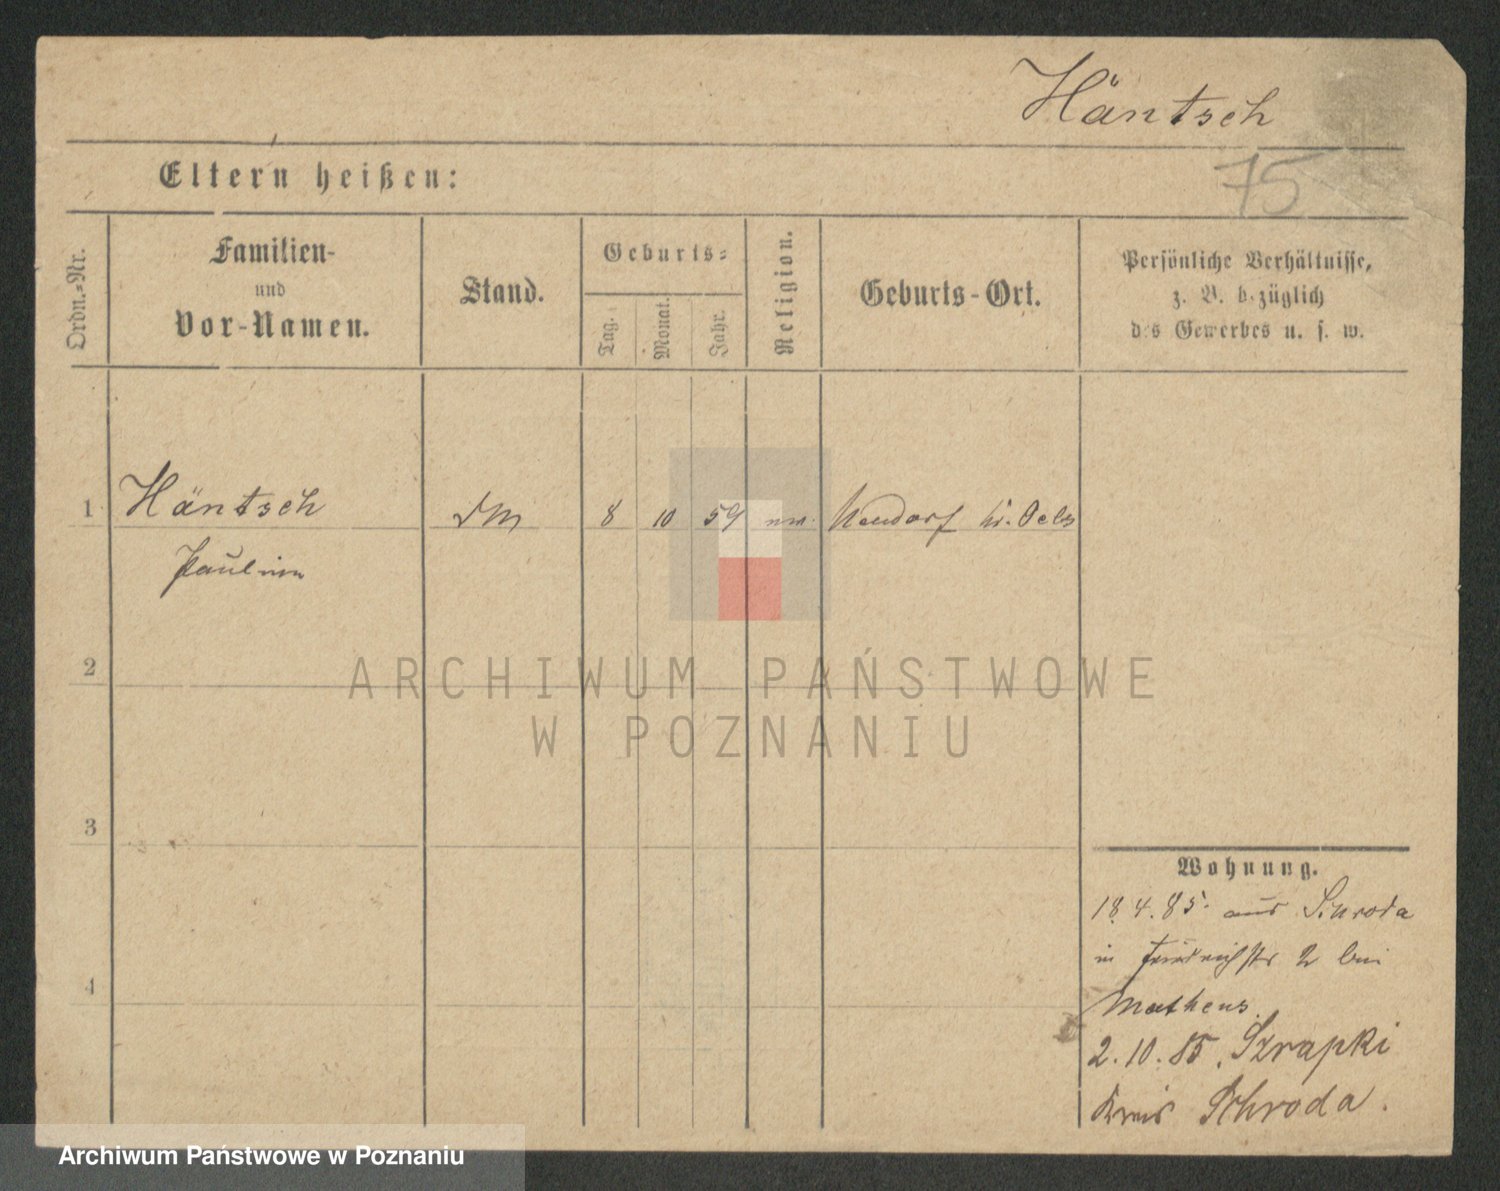 Häntsch
75
Eltern heißen:
Ordn.=Nr.
Familien-
und
Vor-Namen.
Stand.
Geburts=
Tag.
Monat.
Jahr.
Religion.
Geburts-Ort.
Persönliche Verhältnisse,
z. B. bezüglich
des Gewerbes u. s. w.
1
Häntsch
DM
8
10
59
Neudorf Kr. Oels
2
3
4
ARCHIWUM PAŃSTWOWE
W POZNANIU
Wohnung.
18.4.85. aus Schroda
in Friedrichstr 2 bei
Matheus.
2.10.85. Szrapki
Kreis Schroda.
Archiwum Państwowe w Poznaniu